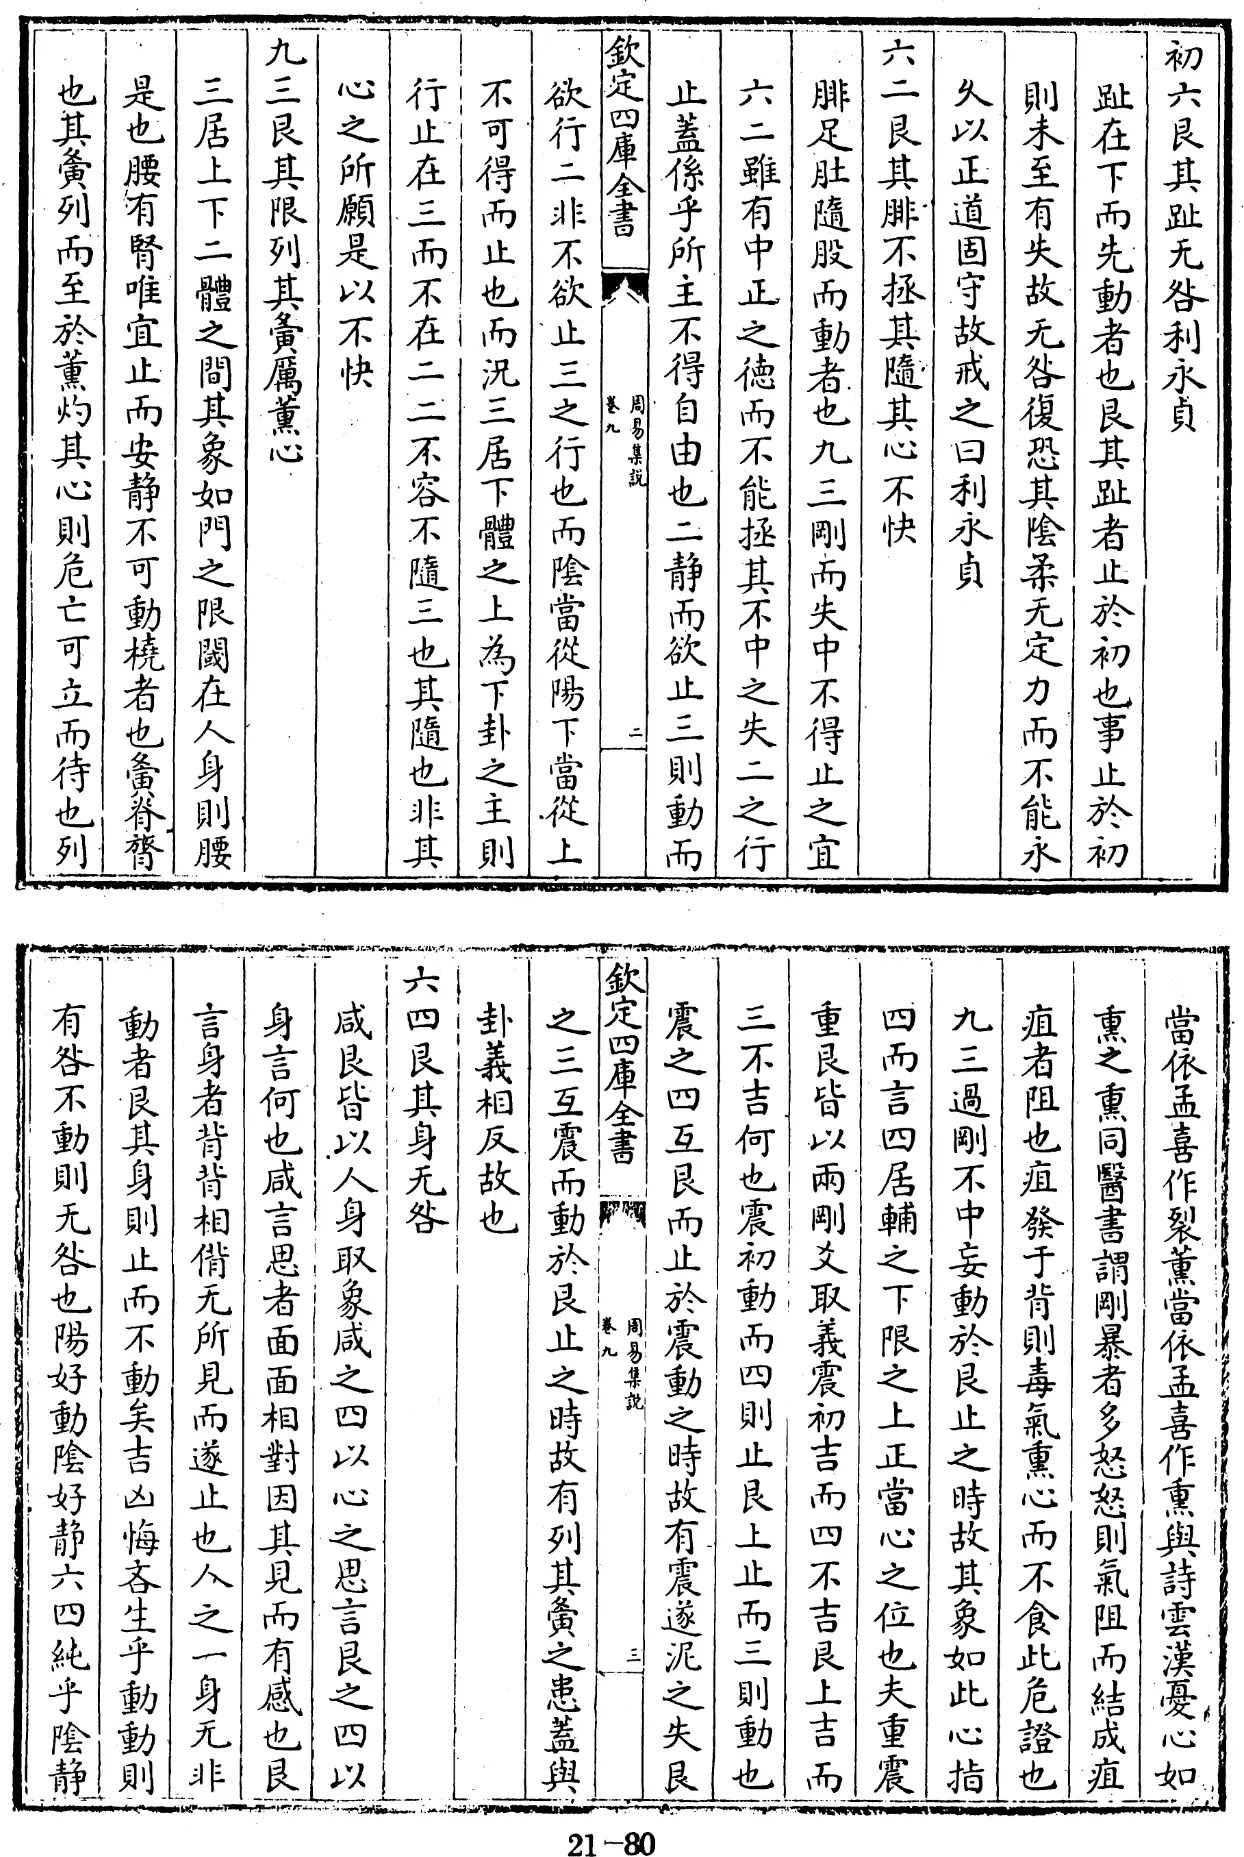 初六艮其趾无咎利永貞
趾在下而先動者也艮其趾者止於初也事止於初
則未至有失故无咎復恐其陰柔无定力而不能永
久以正道固守故戒之曰利永貞
六二艮其腓不拯其隨其心不快
腓足肚隨股而動者也九三剛而失中不得止之宜
六二雖有中正之德而不能拯其不中之失二之行
止蓋係乎所主不得自由也二静而欲止三則動而
欽定四庫全書
周易集說
卷九
二
欲行二非不欲止三之行也而陰當從陽下當從上
不可得而止也而況三居下體之上為下卦之主則
行止在三而不在二二不容不隨三也其隨也非其
心之所願是以不快
九三艮其限列其夤厲薰心
三居上下二體之間其象如門之限閾在人身則腰
是也腰有腎唯宜止而安静不可動橈者也夤脊膂
也其夤列而至於薰灼其心則危亡可立而待也列
當依孟喜作裂薰當依孟喜作熏與詩雲漢憂心如
熏之熏同醫書謂剛暴者多怒怒則氣阻而結成疽
疽者阻也疽發于背則毒氣熏心而不食此危證也
九三過剛不中妄動於艮止之時故其象如此心指
四而言四居輔之下限之上正當心之位也夫重震
重艮皆以兩剛爻取義震初吉而四不吉艮上吉而
三不吉何也震初動而四則止艮上止而三則動也
震之四互艮而止於震動之時故有震遂泥之失艮
欽定四庫全書
周易集說
卷九
三
之三互震而動於艮止之時故有列其夤之患蓋與
卦義相反故也
六四艮其身无咎
咸艮皆以人身取象咸之四以心之思言艮之四以
身言何也咸言思者面面相對因其見而有感也艮
言身者背背相偝无所見而遂止也人之一身无非
動者艮其身則止而不動矣吉凶悔吝生乎動動則
有咎不動則无咎也陽好動陰好静六四純乎陰静
21-80